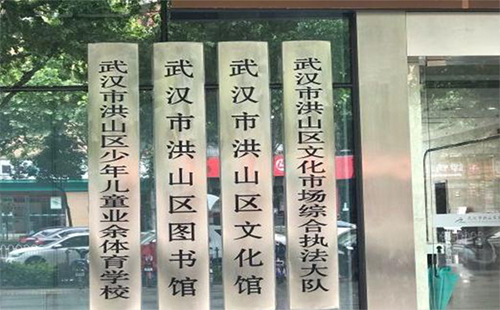 武汉市洪山区少年儿童业余体育学校
武汉市洪山区图书馆
武汉市洪山区文化馆
武汉市洪山区文化市场综合执法大队